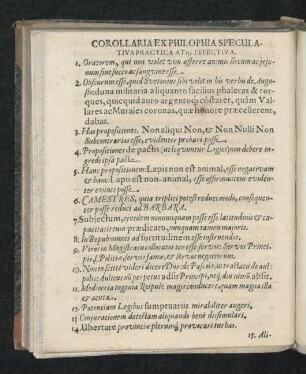 COROLLARIA EX PHILOPHIA SPECULA-
TIVA PRACTICA ATQ; EFFECTIVA.
1. Oratorem, qui non valet vim afferre animis secum ac jeju-
num sine succo ac sangvine esse.
2. Obscurum esse, quid Svetonius sibi velit in his verbis de Augu-
sto: dona militaria aliquanto facilius phaleras & tor-
ques, quicquid auro argentoq́; costaret, quàm Val-
lares ac Murales coronas, quæ honore præcellerent,
dabat.
3. Has propositiones. Non aliqui Non, & Non Nulli Non
Subcontrarias esse, evidenter probari posse.
4. Propositiones de pactis (ut loquuntur Logici) non debere in-
gredi ipsa pacta.
5. Hanc propositionem: Lapis non est animal, esse negativam
& hanc: Lapis est non-animal, esse affirmantem eviden-
ter evinci posse.
6. CAMESTRES, quia triplici potest reduci modo, consequen-
ter posse reduci ad BARBARA.
7. Subjectum, ejusdem nonnunquam posse esse latitudinis & ca-
pacitatis cum prædicato, nunquam tamen majoris.
8. In Republ. omnes ad fortitudinem esse instruendos.
9. Virorum Magistratus esse servos: Servus Princi-
pis, Politiæ, servus famæ, & servus negotiorum.
11. Mediocria ingenia Reipub: magis conducere, quam magna illa
& acuta.
12. Potentiam Legibus sumptuariis mirabiliter augeri.
13. Conjurationem detectam aliquando benè dissimulari.
14. Ubertate provinciæ plerunq́; provocari turbas.
15. Ali-